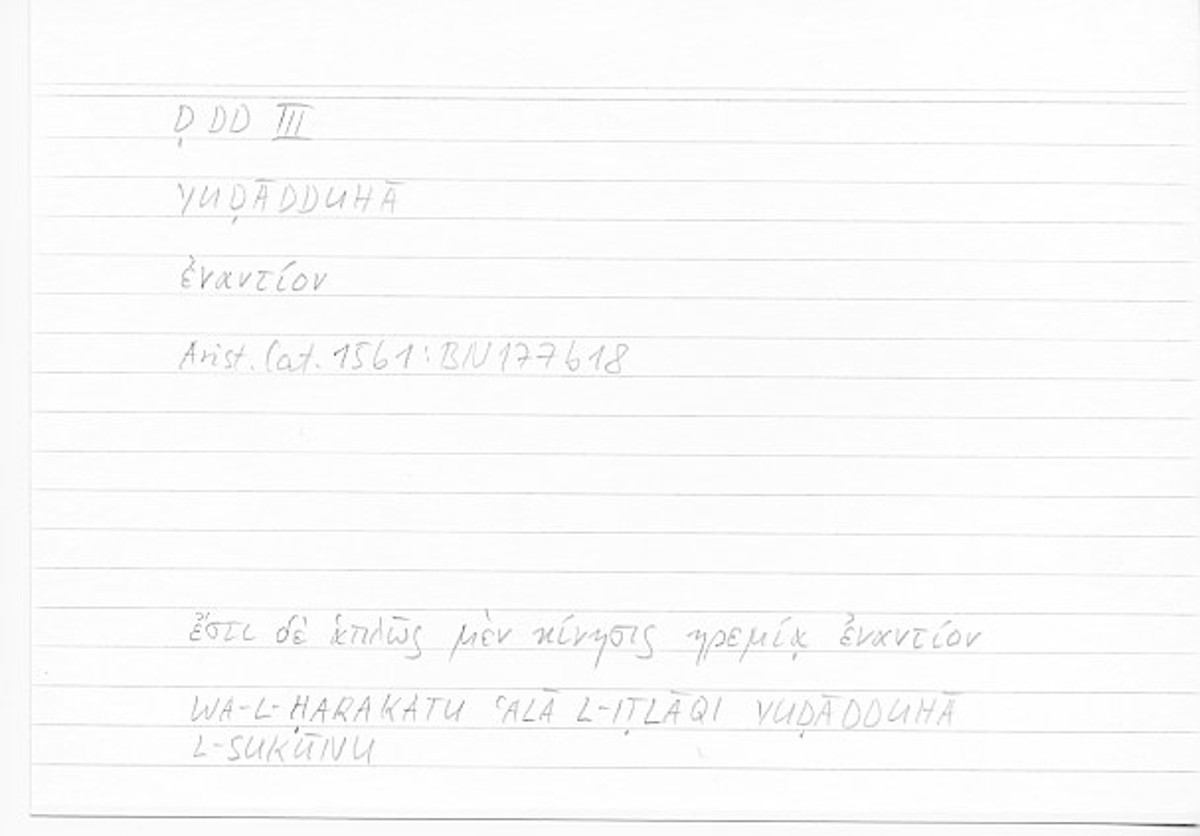 Ḍ DD III
YUḌĀDDUHĀ
ἐναντίον
Arist. Cat. 15b1 : BN 177b18
ἔστι δὲ ἁπλῶς μὲν κίνησις ἠρεμίᾳ ἐναντίον
WA-L-ḤARAKATU ʿALĀ L-IṬLĀQI YUḌĀDDUHĀ
L-SUKŪNU